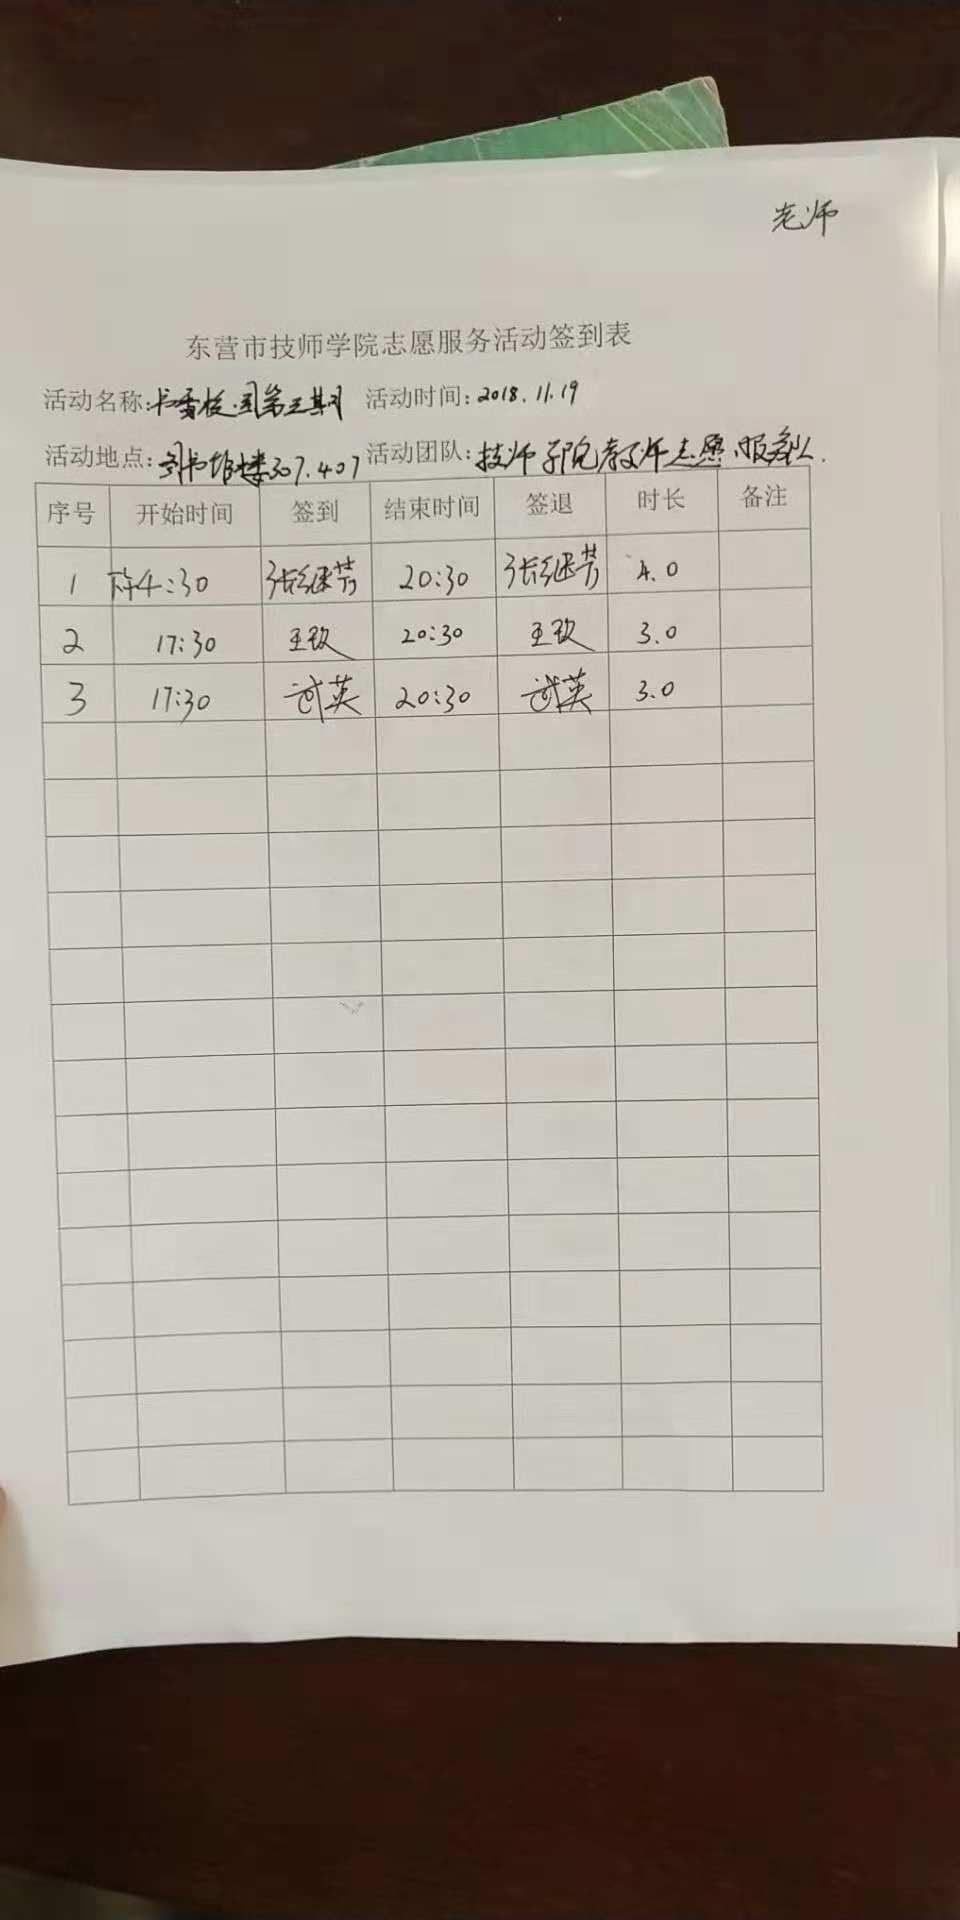 老师
东营市技师学院志愿服务活动签到表
活动名称:书香校园第三期 活动时间:2018.11.19
活动地点:图书馆楼307.407 活动团队:技师学院教师志愿服务队.
序号 开始时间 签到 结束时间 签退 时长 备注
1 下午4:30 张继芳 20:30 张继芳 4.0
2 17:30 王玫 20:30 王玫 3.0
3 17:30 武英 20:30 武英 3.0